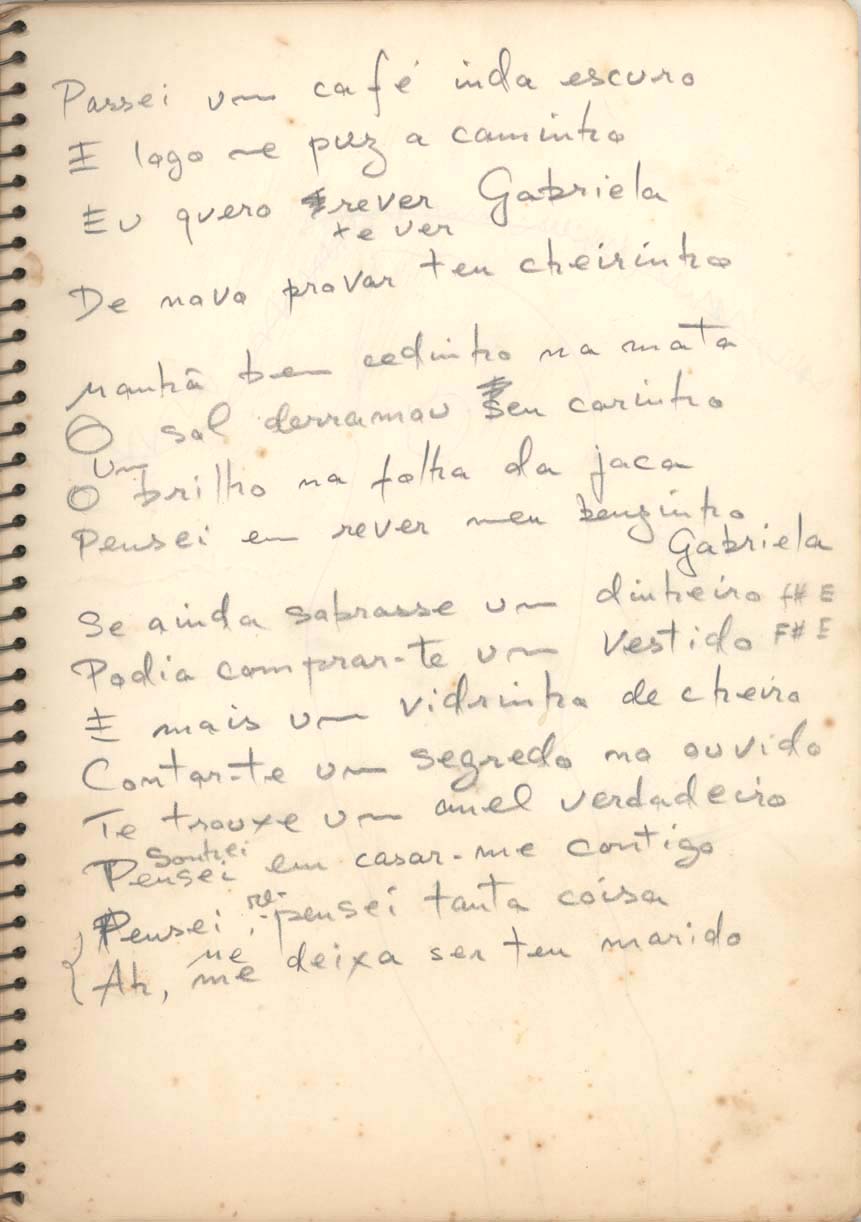 Passei um café inda escuro
E logo me puz a caminho
Eu quero rever Gabriela
te ver
De novo provar teu cheirinho
Manhã bem cedinho na mata
O sol derramou seu carinho
Um
O brilho na folha da jaca
Pensei em rever meu benzinho
Gabriela
Se ainda sobrasse um dinheiro F# E
Podia comprar-te um vestido F# E
E mais um vidrinho de cheiro
Contar-te um segredo no ouvido
Te trouxe um anel verdadeiro
Sonhei
Pensei em casar-me contigo
Pensei, re-pensei tanta coisa
me
Ah, me deixa ser teu marido